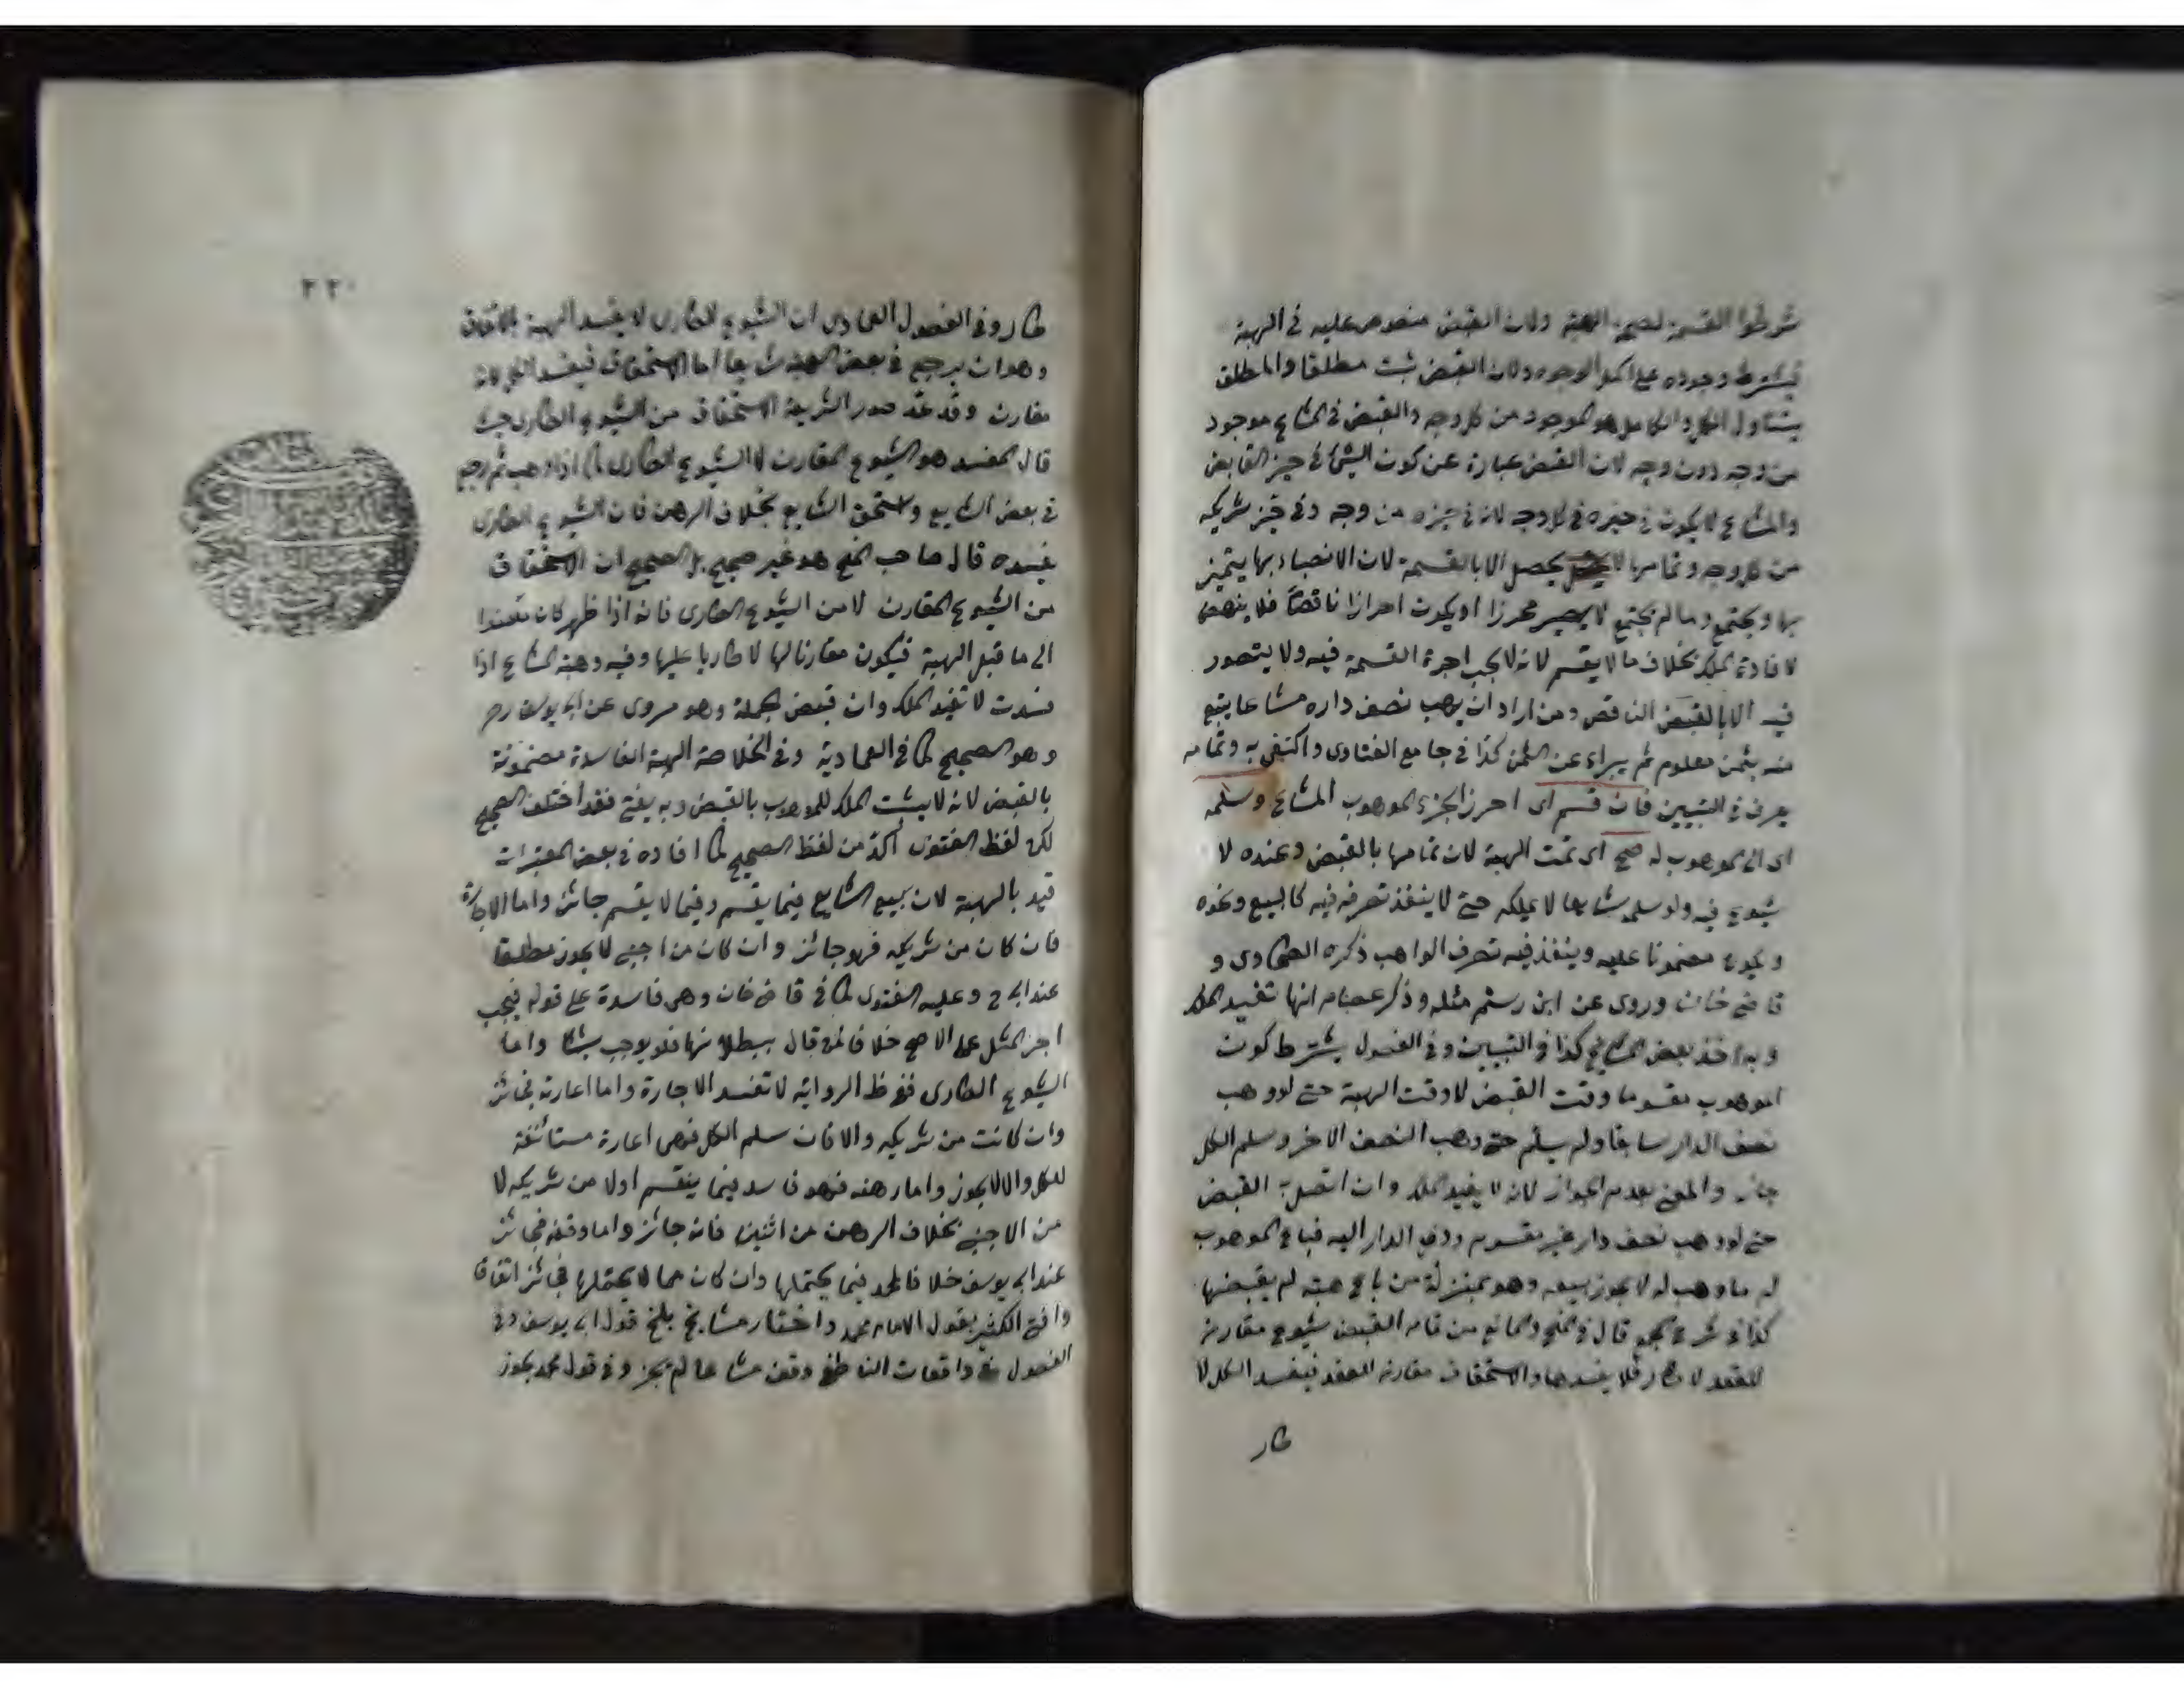 شرطوا القسمة لصحة الهبة ولان القبض منصوص عليه في الهبة
فيشترط وجوده على اكمل الوجوه ولان القبض ثبت مطلقا والمطلق
يتناول الكل والكامل هو الموجود من كل وجه والقبض في المشاع موجود
من وجه دون وجه لان القبض عبارة عن كون الشئ في حيز القابض
والمشاع لا يكون في حيزه في كل وجه لانه في حيزه من وجه وفي حيز شريكه
من كل وجه وتمامها لا يحصل الا بالقسمة لان الانصباء بها يتميز
بها ويجتمع وما لم يجتمع لا يصير محرزا او يكون احرازا ناقصا فلا ينهض
لافادة الملك بخلاف ما لا يقسم لانه لا يجب اجرة القسمة فيه ولا يتصور
فيه الا بالقبض الناقص ومن اراد ان يهب نصف داره مشاعا يبيع
منه بثمن معلوم ثم يبراء عن الثمن كذا في جامع الفتاوى واكتفى به وتمامه
يعرف في التبيين فان قسم اى احرز الجزء الموهوب المشاع وسلمه
اى الى الموهوب له صح اى تمت الهبة لان تمامها بالقبض وعنده لا
شيوع فيه ولو سلمه شايعا لا يملكه حتى لا ينفذ تصرفه فيه كالبيع ونحوه
ويكون مضمونا عليه وينفذ فيه تصرف الواهب ذكره الطحاوى و
قاضى خان وروى عن ابن رستم مثله وذكر عصام انها تفيد الملك
وبه اخذ بعض المشايخ كذا في التبيين وفي الفصول يشترط كون
الموهوب مقسوما وقت القبض لا وقت الهبة حتى لو وهب
نصف الدار شايعا ولم يسلم حتى وهب النصف الاخر وسلم الكل
جاز والمعنى بعدم الجواز لانه لا يفيد الملك وان اتصل به القبض
حتى لو وهب نصف دار غير مقسوم ودفع الدار اليه فباع الموهوب
له ما وهب له لا يجوز بيعه وهو بمنزلة من باع هبة لم يقبضها
كذا في شرح المجمع قال في المنح والمانع من تمام القبض شيوع مقارن
للعقد لا طار فلا يفسدها والاستحقاق مقارن للعقد فيفسد الكل لا
طار
٢٢٠
طار وفي الفصول العمادى ان الشيوع الطارى لا يفسد الهبة بالاتفاق
وهو ان يرجع في بعض الهبة شايعا اما الاستحقاق فيفسد الكل لانه
مقارن وقد عد صدر الشريعة الاستحقاق من الشيوع الطارى حيث
قال المفسد هو الشيوع المقارن لا الشيوع الطارى كما اذا وهب ثم رجع
في بعض الشايع واستحق الشايع بخلاف الرهن فان الشيوع الطارى
يفسده قال صاحب المنح هو غير صحيح بل الصحيح ان الاستحقاق
من الشيوع المقارن لا من الشيوع الطارى فانه اذا ظهر كان مستندا
الى ما قبل الهبة فيكون مقارنا لها لا طاريا عليها وفيه وهبة المشاع اذا
فسدت لا تفيد الملك وان قبض الجملة وهو مروى عن ابى يوسف رحم
وهو الصحيح كما في العمادية وفي الخلاصة الهبة الفاسدة مضمونة
بالقبض لانه لا يثبت الملك للموهوب بالقبض وبه يفتى فقد اختلف الصحيح
لكن لفظ الفتوى آكد من لفظ الصحيح كما افاده في بعض المعتبرات
قيد بالهبة لان بيع الشايع فيما يقسم وفيما لا يقسم جائز واما الاجارة
فان كان من شريكه فهو جائز وان كان من اجنبى لا يجوز مطلقا
عند ابى ح وعليه الفتوى كما في قاضى خان وهى فاسدة على قوله فيجب
اجر المثل على الاصح خلافا لمن قال ببطلانها فلا يوجب شيئا واما
الشيوع الطارى ففى ظ الرواية لا تفسد الاجارة واما اعارته فجائز
وان كانت من شريكه والا فان سلم الكل فهى اعارة مستأنفة
للكل والا لا يجوز واما رهنه فهو فاسد فيما ينقسم اولا من شريكه لا
من الاجنبى بخلاف الرهن من اثنين فانه جائز واما وقفه فجائز
عند ابى يوسف خلافا لمحمد فيما يحتملها وان كان مما لا يحتملها فجائز اتفاقا
وافتى الكثير بقول الامام محمد واختار مشايخ بلخ قول ابى يوسف وفي
الفصول في واقعات الناطفى وقف مشاعا لم يجز وفي قول محمد يجوز